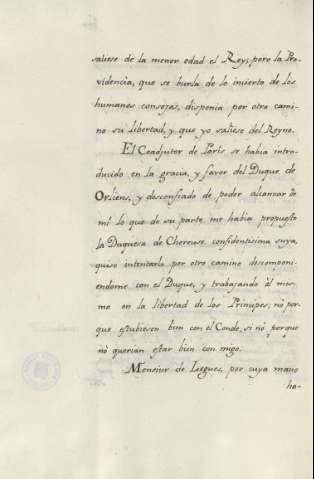 saliese de la menor edad el Rey; pero la Pro-
videncia, que se burla de lo incierto de los
humanos consejos, disponia por otro cami-
no su libertad, y que yo saliese del Reyno.
El Coadjutor de Paris se habia intro-
ducido en la gracia, y favor del Duque de
Orliens, y desconfiado de poder alcanzar de
mi lo que de su parte me habia propuesto
la Duquesa de Cherense confidentisima suya,
quiso intentarlo por otro camino descomponi-
endome con el Duque, y trabajando él mis-
mo en la libertad de los Principes; no por-
que estubiesen bien con el Conde, si nó porque
nó querian estar bien con migo.
Monsiur de Laegues, por cuya mano
ha-